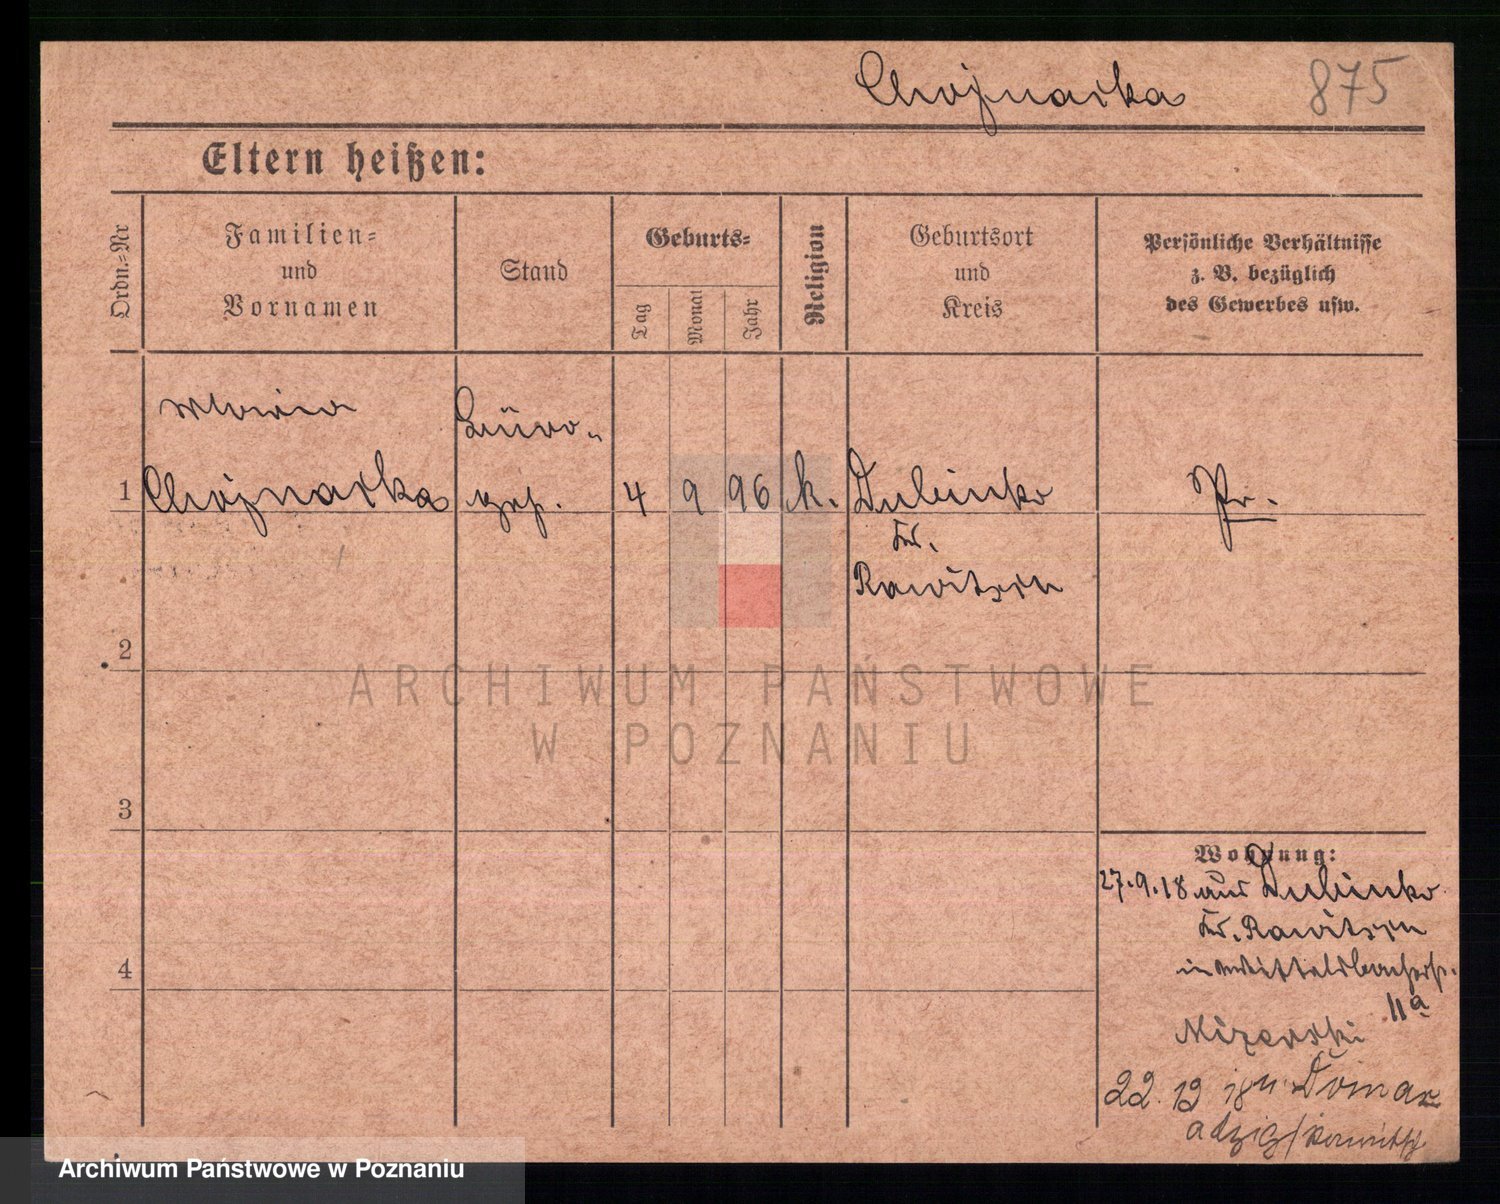 Chojnacka 875
Eltern heißen:
Ordn.-Nr
Familien-
und
Vornamen
Stand
Geburts-
Tag
Monat
Jahr
Religion
Geburtsort
und
Kreis
Persönliche Verhältnisse
z. B. bezüglich
des Gewerbes usw.
Maria Büro-
1 Chojnacka geh. 4 9 96 k. Dubinko Pr.
Kr.
Rawitsch
2
3
4
Wohnung:
27.9.18 aus Dubinko
Kr. Rawitsch
in
11a
Mizerski
22. 12 18 n.
ARCHIWUM PAŃSTWOWE
W POZNANIU
Archiwum Państwowe w Poznaniu